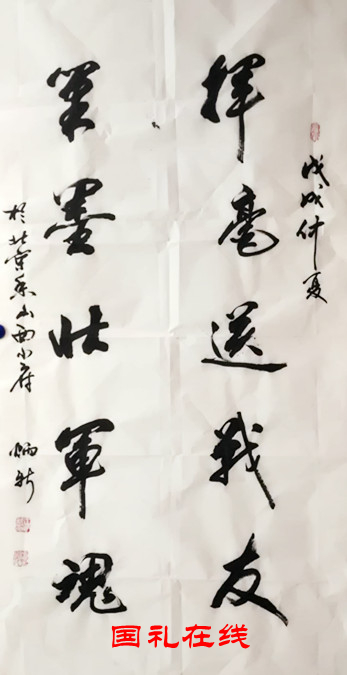 戊戌仲夏
揮毫送戰友
筆墨壯軍魂
於北京香山西小府 炳新
国礼在线